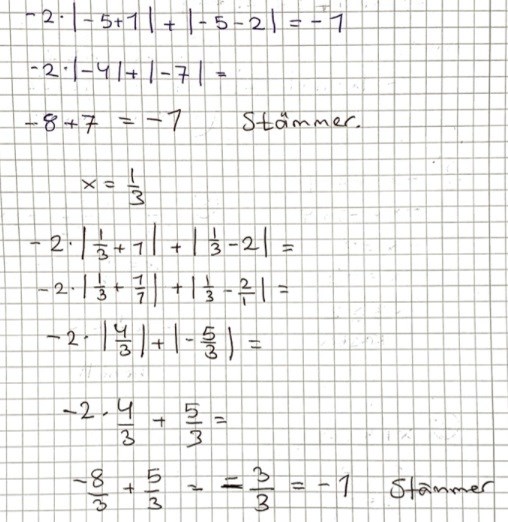 -2·|-5+1| + |-5-2| = -1
-2·|-4|+|-7| =
-8+7 = -1 Stämmer.
x = 1/3
-2·|1/3 + 1| + |1/3 - 2| =
-2·|1/3 + 1/1| + |1/3 - 2/1| =
-2·|4/3| + |-5/3| =
-2·4/3 + 5/3 =
-8/3 + 5/3 = -3/3 = -1 Stämmer